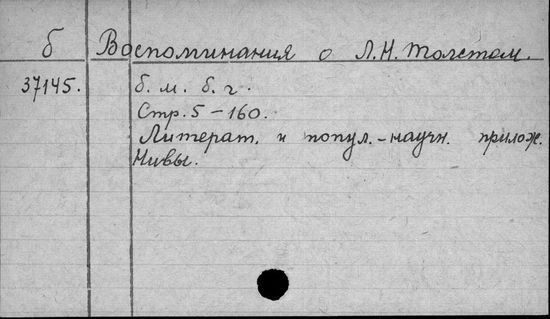 б Воспоминания о Л.Н. Толстом.
37145. б. м. б. г.
Стр. 5-160.
Литерат. и попул.-научн. прилож.
Нивы.